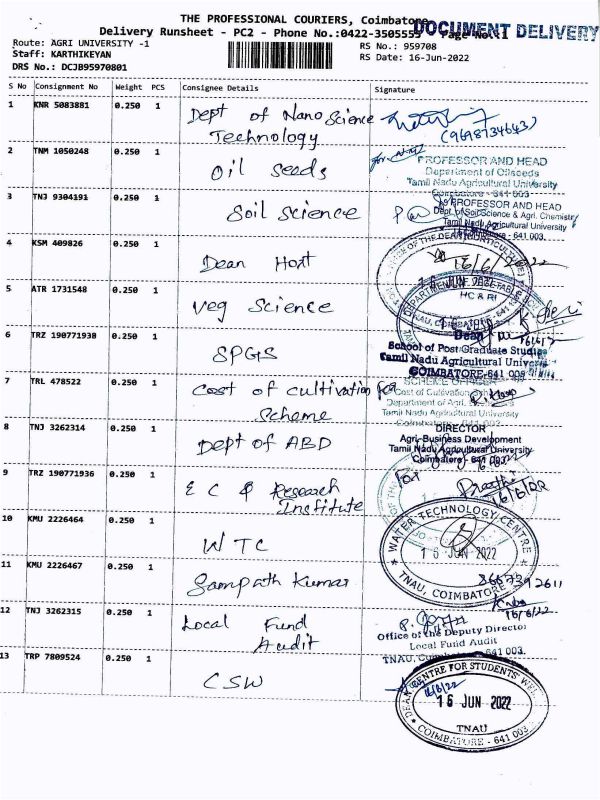 THE PROFESSIONAL COURIERS, Coimbatore
DOCUMENT DELIVERY
Delivery Runsheet - PC2 - Phone No.:0422-3505555 Page No.:1
Route: AGRI UNIVERSITY -1
RS No.: 959708
Staff: KARTHIKEYAN
RS Date: 16-Jun-2022
DRS No.: DCJB95970801
S No Consignment No Weight PCS Consignee Details Signature
1 KNR 5083881 0.250 1 Dept of Nano Science
Technology
(9698734643)
2 TNM 1050248 0.250 1 Oil Seeds
PROFESSOR AND HEAD
Department of Oilseeds
Tamil Nadu Agricultural University
Coimbatore - 641 003
3 TNJ 9304191 0.250 1 Soil Science
PROFESSOR AND HEAD
Dept. of Soil Science & Agri. Chemistry
Tamil Nadu Agricultural University
Coimbatore - 641 003.
4 KSM 409826 0.250 1 Dean Hort
16/6/2022
HC & RI
5 ATR 1731548 0.250 1 Veg Science
TNAU, COIMBATORE - 641 003
6 TRZ 190771938 0.250 1 SPGS
Dean
School of Post Graduate Studies
Tamil Nadu Agricultural University
COIMBATORE-641 003
7 TRL 478522 0.250 1 Cost of Cultivation
Scheme
SCHEME OFFICER
Cost of Cultivation
Department of Agri.
Tamil Nadu Agricultural University
Coimbatore - 641 003
8 TNJ 3262314 0.250 1 Dept of ABD
DIRECTOR
Agri-Business Development
Tamil Nadu Agricultural University
Coimbatore - 641 003.
9 TRZ 190771936 0.250 1 E C & Research
Institute
10 KMU 2226464 0.250 1 WTC
WATER TECHNOLOGY CENTRE
16 JUN 2022
TNAU, COIMBATORE
11 KMU 2226467 0.250 1 Sampath Kumar
8667392611
16/6/22
12 TNJ 3262315 0.250 1 Local Fund
Audit
Office of the Deputy Director
Local Fund Audit
TNAU, Coimbatore - 641 003.
13 TRP 7809524 0.250 1 CSW
16/6/22
DEAN CENTRE FOR STUDENTS'
16 JUN 2022
TNAU
COIMBATORE - 641 003